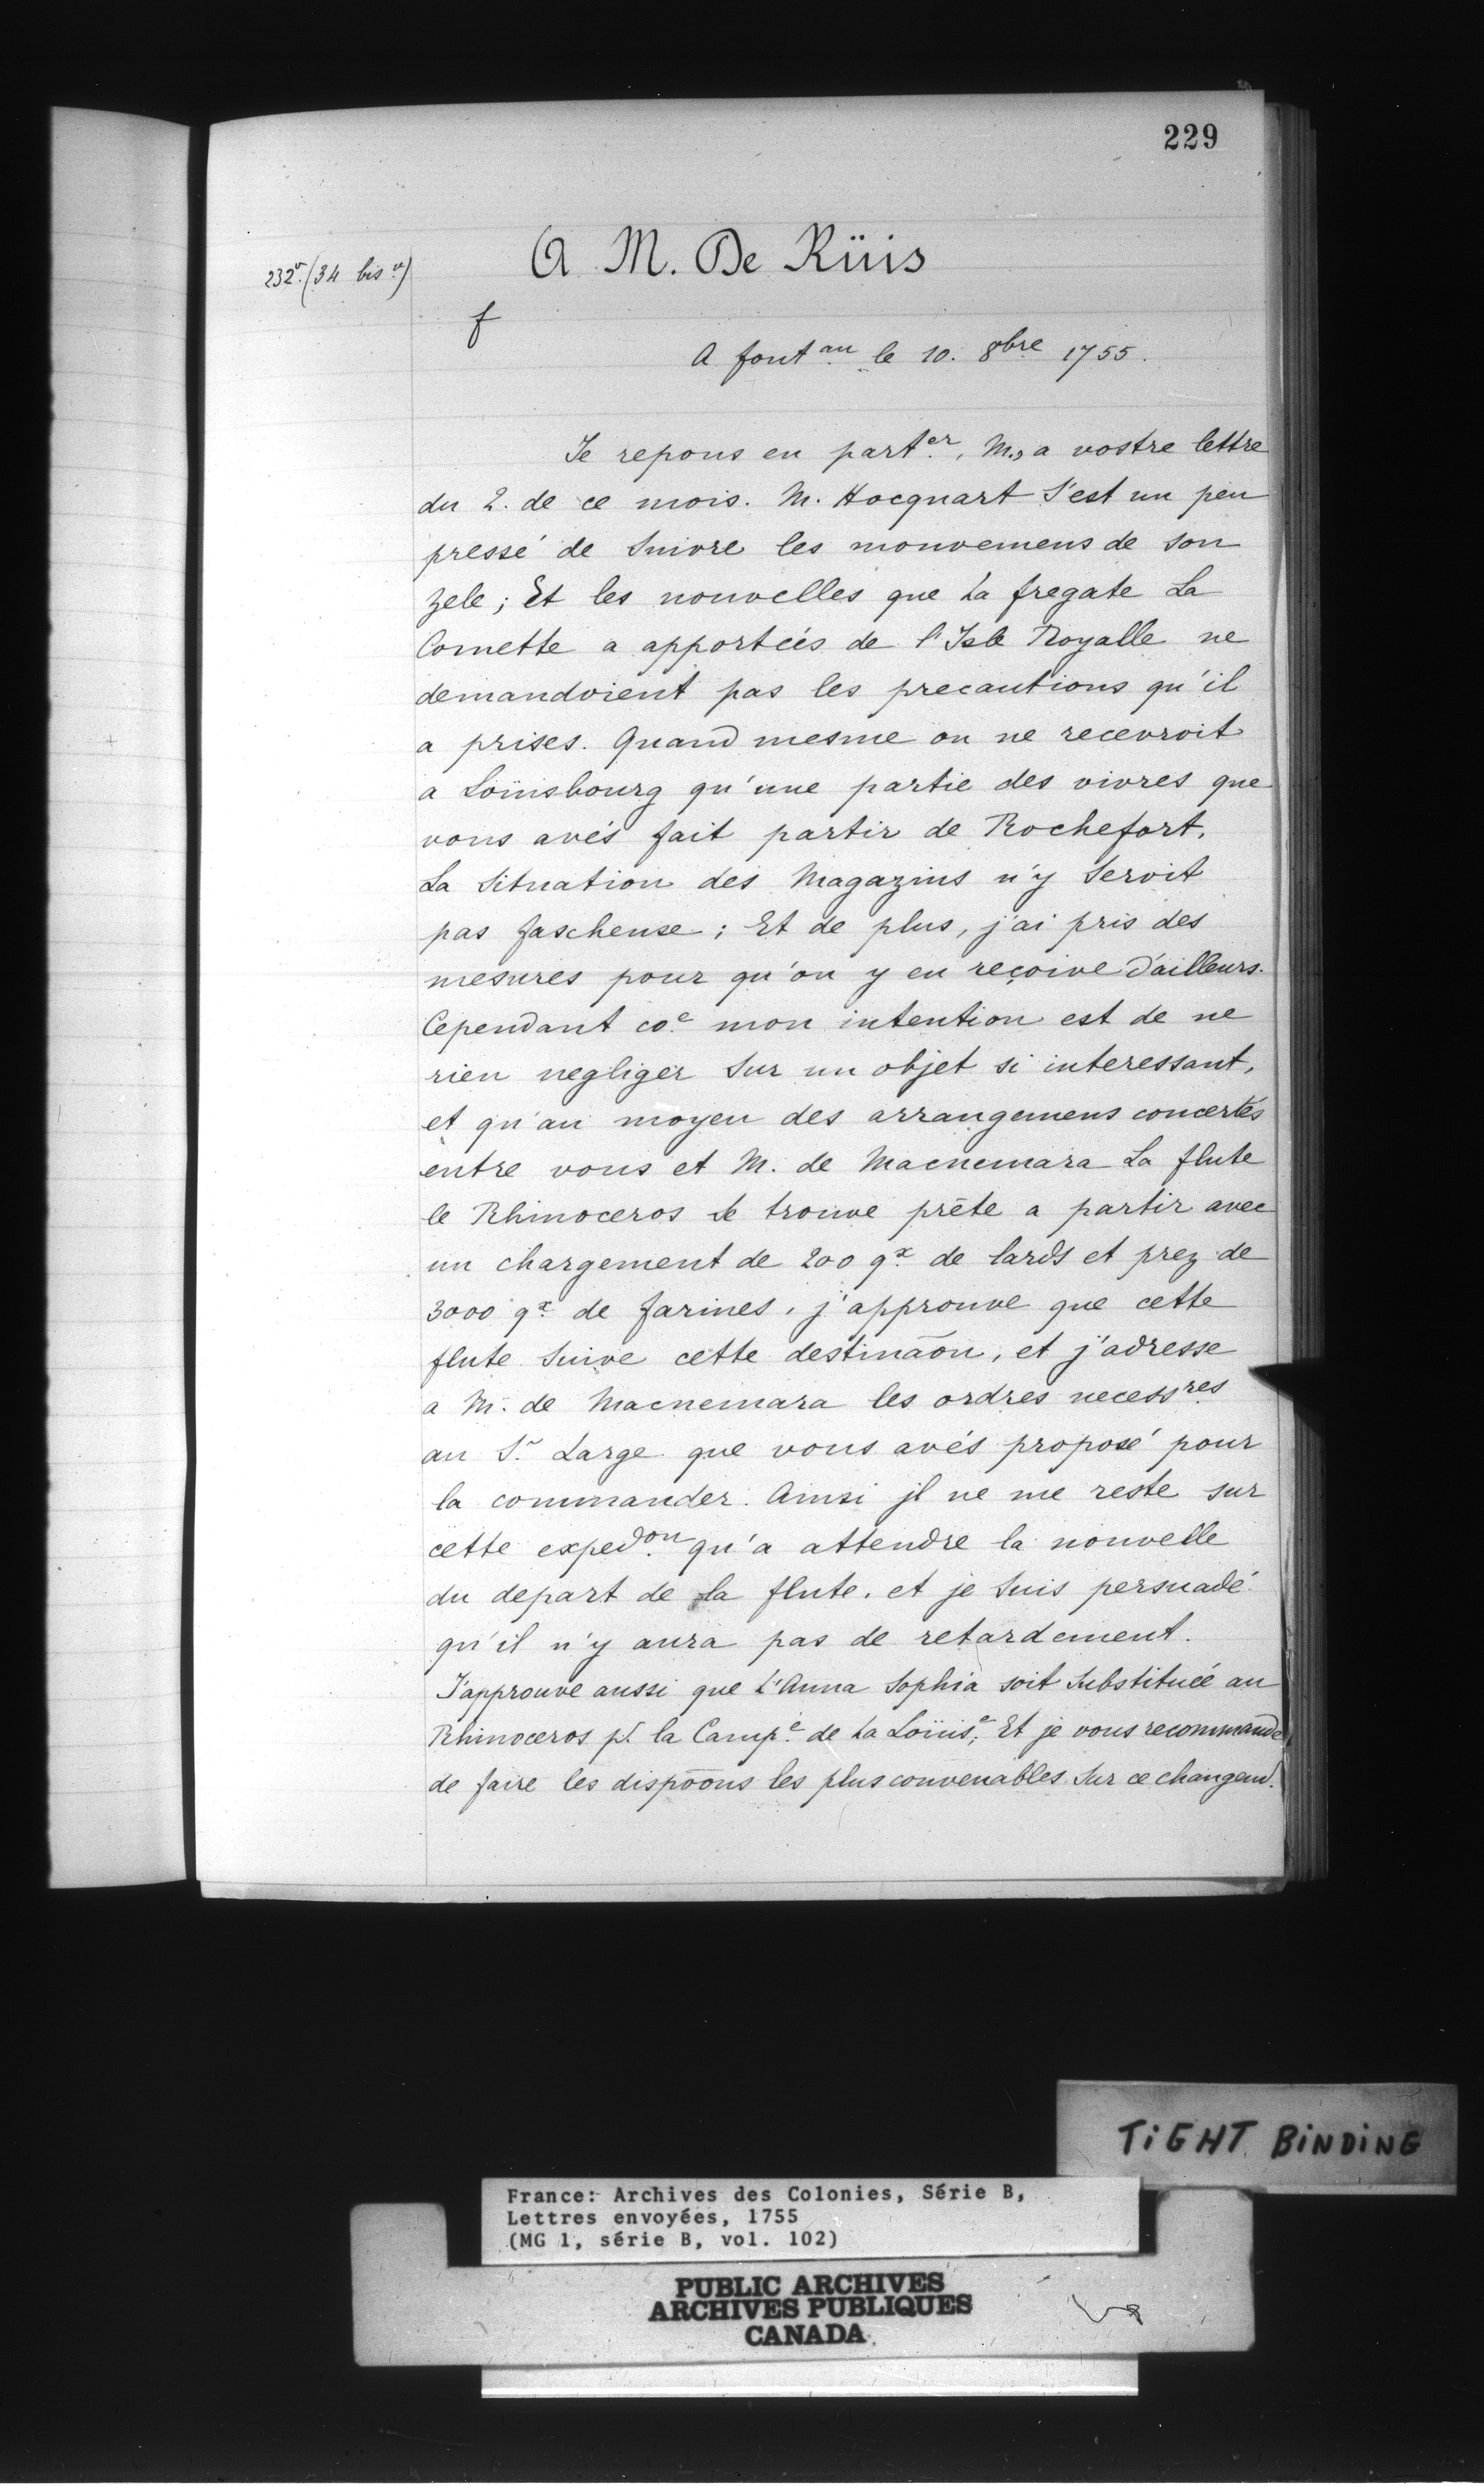 229
232v. (34 bis v)
A M. De Rüis
f
A font au. le 10. 8bre 1755.
Je repons en part.er, M., a vostre lettre
du 2. de ce mois. M. Hocquart s'est un peu
pressé de Suivre les mouvemens de son
zele; Et les nouvelles que La fregate La
Comette a apportées de l'Isle Royalle ne
demandoient pas les precautions qu'il
a prises. Quand mesme on ne recevroit
a Loüisbourg qu'une partie des vivres que
vous avés fait partir de Rochefort,
La Situation des Magazins n'y Seroit
pas fascheuse; Et de plus, j'ai pris des
mesures pour qu'on y en reçoive d'ailleurs.
Cependant co.e mon intention est de ne
rien negliger Sur un objet si interessant,
et qu'au moyen des arrangemens concertés
entre vous et M. de Macnemara La flute
le Rhinoceros se trouve prête a partir avec
un chargement de 200 q.x de lards et prez de
3000 q.x de farines, j'approuve que cette
flute Suive cette destinãon, et j'adresse
a M. de Macnemara les ordres necess.res
au S.r Large que vous avés proposé pour
la commander. Ainsi jl ne me reste sur
cette exped.on qu'a attendre la nouvelle
du depart de la flute, et je Suis persuadé
qu'il n'y aura pas de retardement.
J'approuve aussi que L'Anna Sophia soit Substituée au
Rhinoceros p.r la Camp.e de La Loüis.e; Et je vous recommande
de faire les dispõons les plus convenables Sur ce changem.t
TIGHT BINDING
France: Archives des Colonies, Série B,
Lettres envoyées, 1755
(MG 1, série B, vol. 102)
PUBLIC ARCHIVES
ARCHIVES PUBLIQUES
CANADA